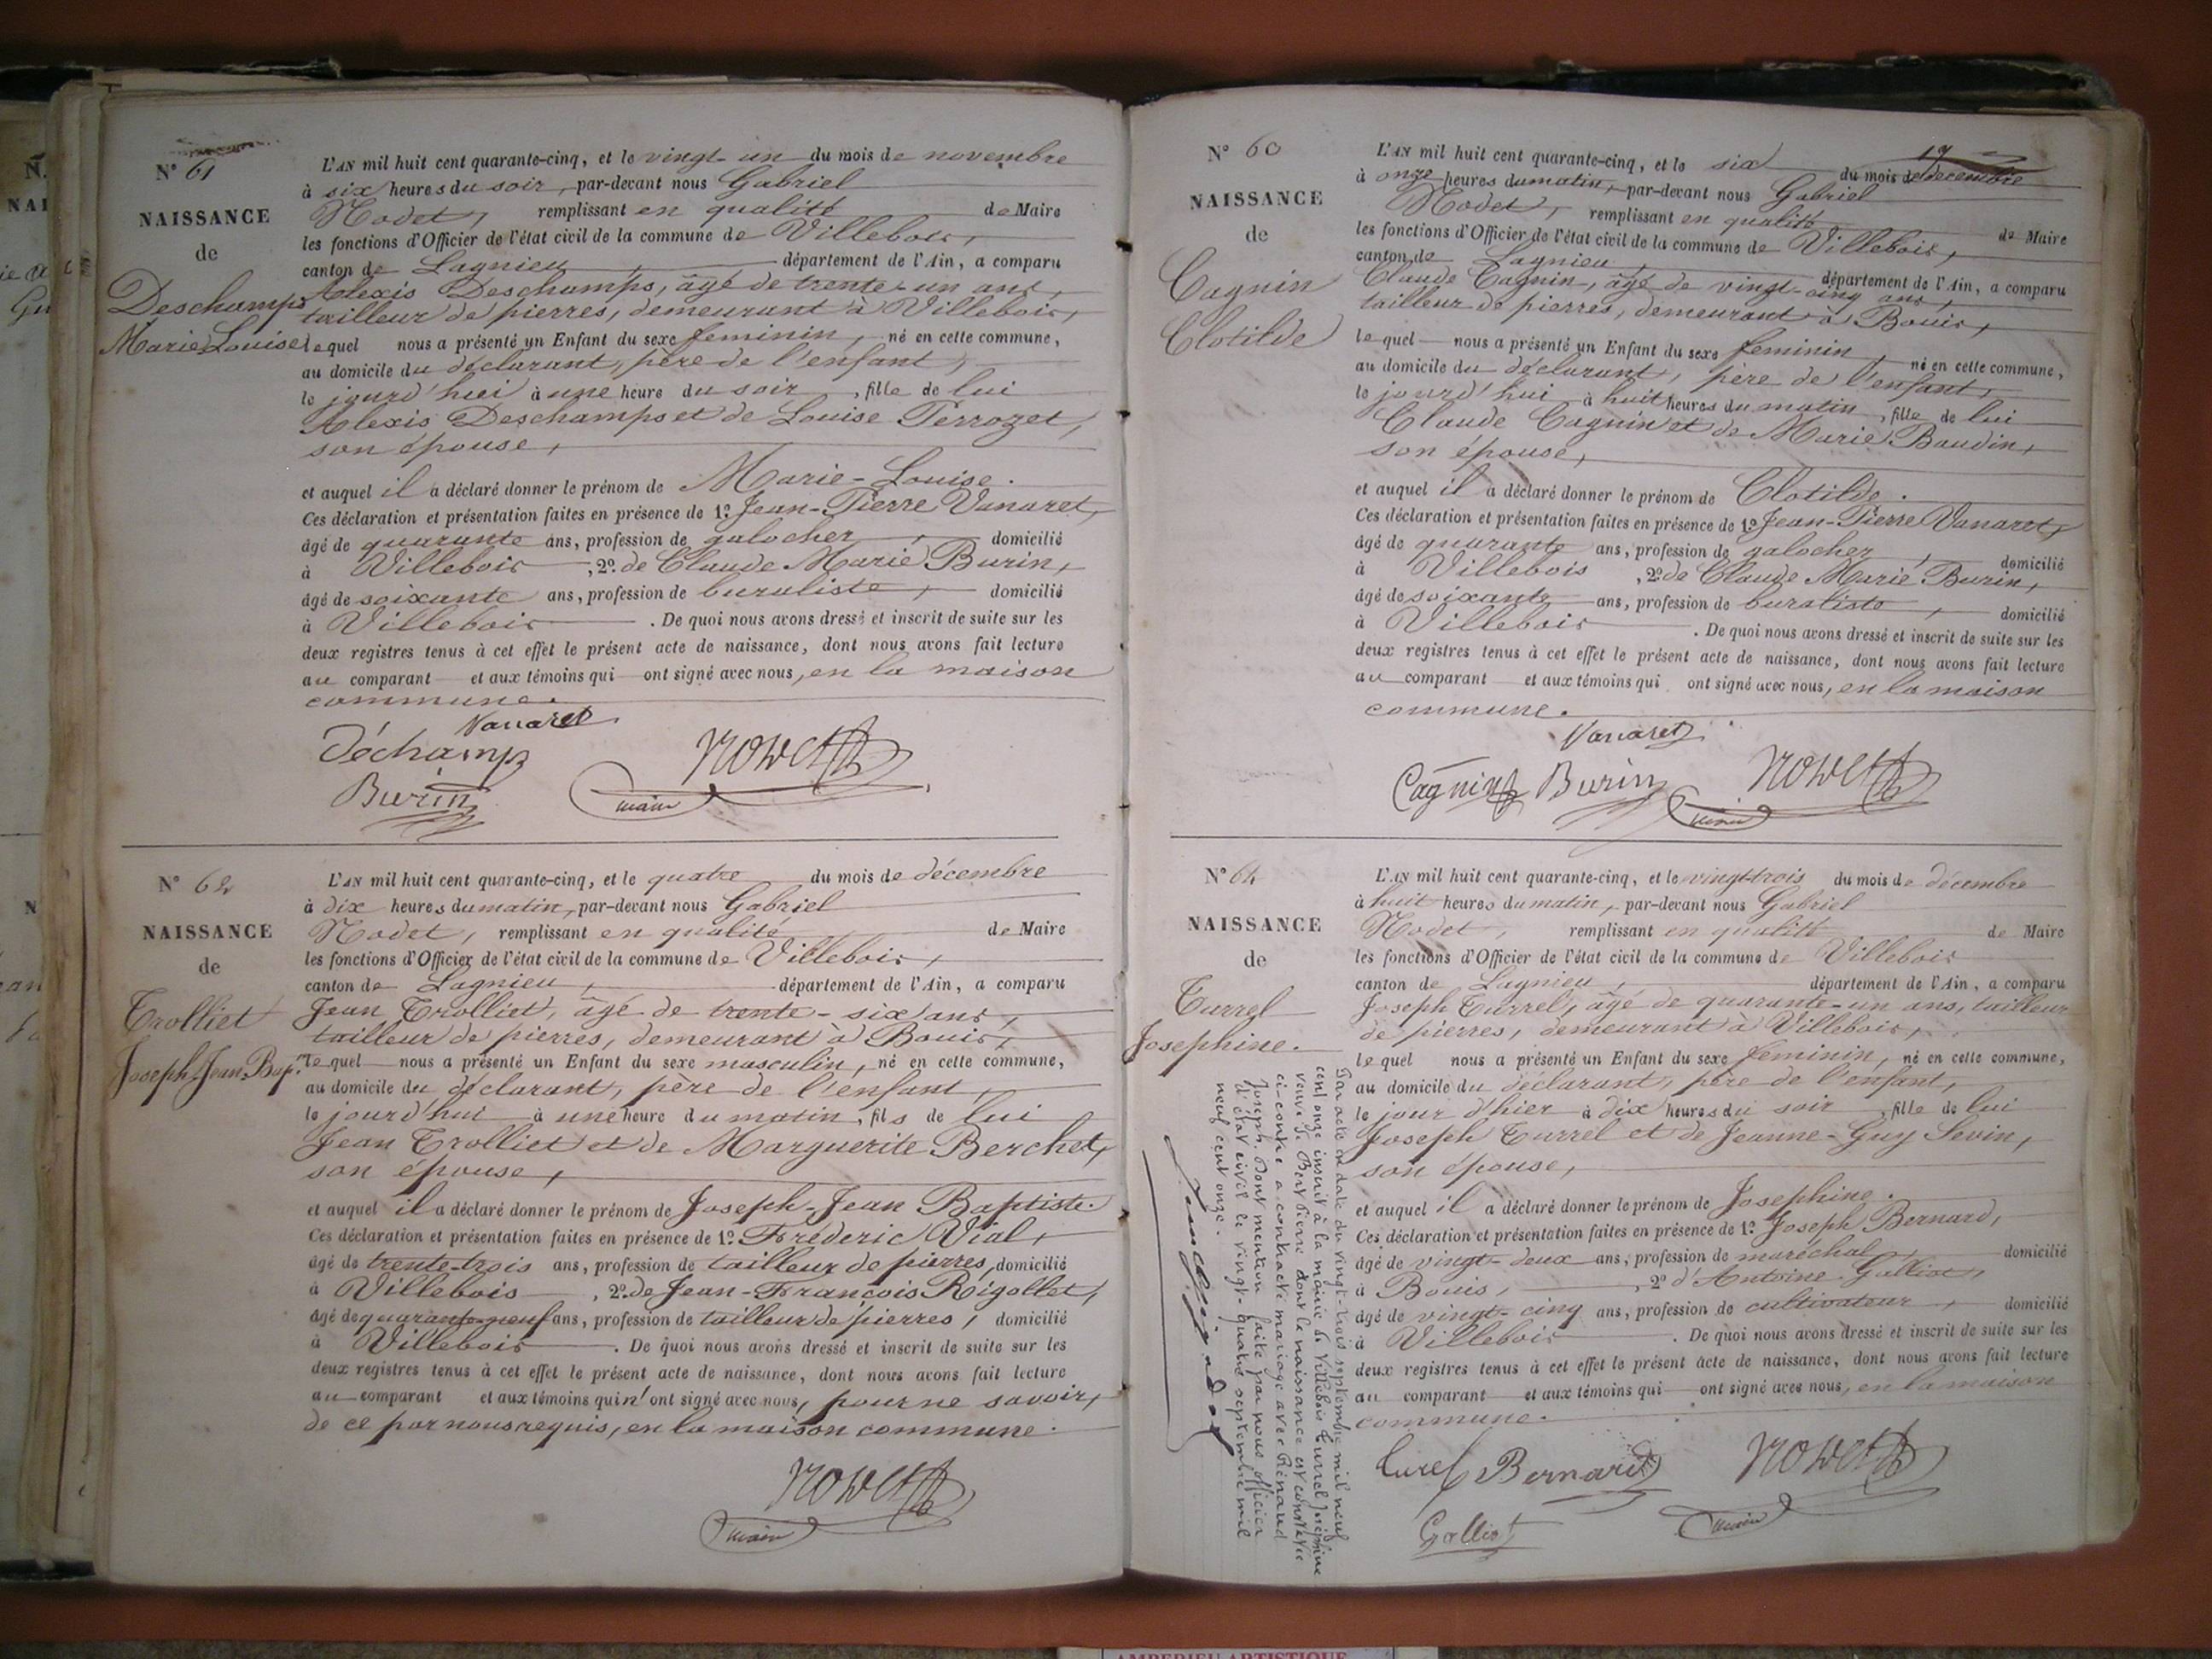 N° 61
NAISSANCE
de
Deschamps
Marie Louise
L'AN mil huit cent quarante-cinq, et le vingt-un du mois de novembre
à six heures du soir, par-devant nous Gabriel
Nodet, remplissant en qualité de Maire
les fonctions d'Officier de l'état civil de la commune de Villebois,
canton de Lagnieu, département de l'Ain, a comparu
Alexis Deschamps, âgé de trente-un ans,
tailleur de pierres, demeurant à Villebois,
lequel nous a présenté un Enfant du sexe feminin, né en cette commune,
au domicile du déclarant, père de l'enfant,
le jourd'hui à une heure du soir, fille de lui
Alexis Deschamps et de Louise Perrozet,
son épouse,
et auquel il a déclaré donner le prénom de Marie-Louise.
Ces déclaration et présentation faites en présence de 1° Jean-Pierre Vanaret,
âgé de quarante ans, profession de galocher, domicilié
à Villebois, 2° de Claude Marie Burin,
âgé de soixante ans, profession de buraliste, domicilié
à Villebois. De quoi nous avons dressé et inscrit de suite sur les
deux registres tenus à cet effet le présent acte de naissance, dont nous avons fait lecture
au comparant et aux témoins qui ont signé avec nous, en la maison
commune.
Vanaret
Déchamp
Nodet
Burin
maire
N° 62
NAISSANCE
de
Trolliet
Joseph-Jean-Bap.te
L'AN mil huit cent quarante-cinq, et le quatre du mois de décembre
à dix heures du matin, par-devant nous Gabriel
Nodet, remplissant en qualité de Maire
les fonctions d'Officier de l'état civil de la commune de Villebois,
canton de Lagnieu, département de l'Ain, a comparu
Jean Trolliet, âgé de trente-six ans,
tailleur de pierres, demeurant à Bouis,
lequel nous a présenté un Enfant du sexe masculin, né en cette commune,
au domicile du déclarant, père de l'enfant,
le jourd'hui à une heure du matin, fils de lui
Jean Trolliet et de Marguerite Berchet,
son épouse,
et auquel il a déclaré donner le prénom de Joseph-Jean Baptiste.
Ces déclaration et présentation faites en présence de 1° Fréderic Vial,
âgé de trente-trois ans, profession de tailleur de pierres, domicilié
à Villebois, 2° de Jean-François Rigollet,
âgé de quarante-neuf ans, profession de tailleur de pierres, domicilié
à Villebois. De quoi nous avons dressé et inscrit de suite sur les
deux registres tenus à cet effet le présent acte de naissance, dont nous avons fait lecture
au comparant et aux témoins qui n'ont signé avec nous, pour ne savoir,
de ce par nous requis, en la maison commune.
Nodet
maire
N° 60
NAISSANCE
de
Cagnin
Clotilde
L'AN mil huit cent quarante-cinq, et le six du mois de décembre
à onze heures du matin, par-devant nous Gabriel
Nodet, remplissant en qualité de Maire
les fonctions d'Officier de l'état civil de la commune de Villebois,
canton de Lagnieu, département de l'Ain, a comparu
Claude Cagnin, âgé de vingt-cinq ans,
tailleur de pierres, demeurant à Bouis,
lequel nous a présenté un Enfant du sexe feminin, né en cette commune,
au domicile du déclarant, père de l'enfant,
le jourd'hui à huit heures du matin, fille de lui
Claude Cagnin et de Marie Baudin,
son épouse,
et auquel il a déclaré donner le prénom de Clotilde.
Ces déclaration et présentation faites en présence de 1° Jean-Pierre Vanaret,
âgé de quarante ans, profession de galocher, domicilié
à Villebois, 2° de Claude Marie Burin,
âgé de soixante ans, profession de buraliste, domicilié
à Villebois. De quoi nous avons dressé et inscrit de suite sur les
deux registres tenus à cet effet le présent acte de naissance, dont nous avons fait lecture
au comparant et aux témoins qui ont signé avec nous, en la maison
commune.
Vanaret
Cagnin Burin Nodet
maire
N° 64
NAISSANCE
de
Turrel
Josephine.
L'AN mil huit cent quarante-cinq, et le vingt-trois du mois de décembre
à huit heures du matin, par-devant nous Gabriel
Nodet, remplissant en qualité de Maire
les fonctions d'Officier de l'état civil de la commune de Villebois
canton de Lagnieu, département de l'Ain, a comparu
Joseph Turrel, âgé de quarante-un ans, tailleur
de pierres, demeurant à Villebois,
lequel nous a présenté un Enfant du sexe feminin, né en cette commune,
au domicile du déclarant, père de l'enfant,
le jour d'hier à dix heures du soir, fille de lui
Joseph Turrel et de Jeanne-Guy Sevin,
son épouse,
et auquel il a déclaré donner le prénom de Josephine.
Ces déclaration et présentation faites en présence de 1° Joseph Bernard,
âgé de vingt-deux ans, profession de maréchal, domicilié
à Bouis, 2° d'Antoine Galliot,
âgé de vingt-cinq ans, profession de cultivateur, domicilié
à Villebois. De quoi nous avons dressé et inscrit de suite sur les
deux registres tenus à cet effet le présent acte de naissance, dont nous avons fait lecture
au comparant et aux témoins qui ont signé avec nous, en la maison
commune.
Turel Bernard Nodet
Galliot maire
Par acte en date du vingt-trois septembre mil neuf
cent onze inscrit à la mairie de Villebois Turrel Joséphine
veuve de Bert Pierre dont la naissance est constatée
ci-contre a contracté mariage avec Renaud
Joseph. Dont mention faite par nous officier
d'état civil le vingt-quatre septembre mil
neuf cent onze.
AMBERIEU ARTISTIQUE